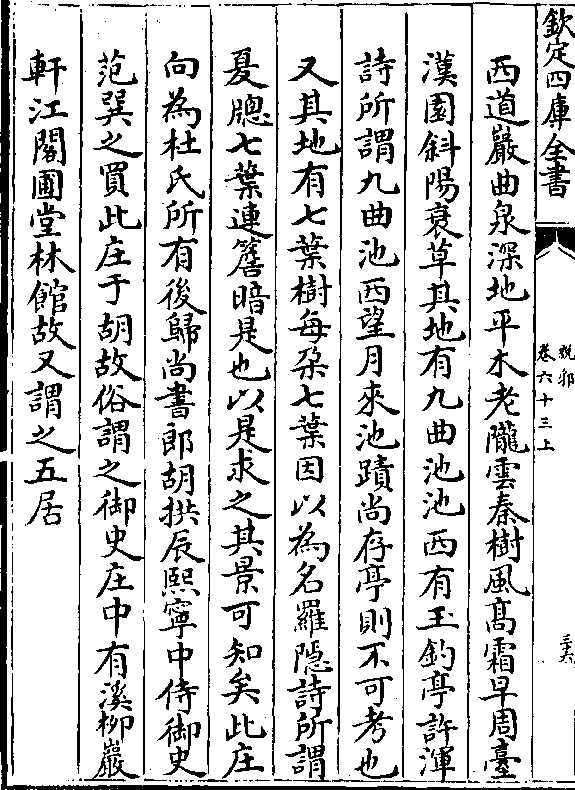 欽定四庫全書
說郛
卷六十三上
三六
西道巖曲泉深地平木老隴雲秦樹風髙霜早周臺
漢園斜陽衰草其地有九曲池池西有玉鈎亭許渾
詩所謂九曲池西望月來池蹟尚存亭則不可考也
又其地有七葉樹每朶七葉因以為名羅隱詩所謂
夏牕七葉連簷暗是也以是求之其景可知矣此庄
向為杜氏所有後歸尚書郎胡拱辰熙寧中侍御史
范巽之買此庄于胡故俗謂之御史庄中有溪柳巖
軒江閣圃堂林館故又謂之五居